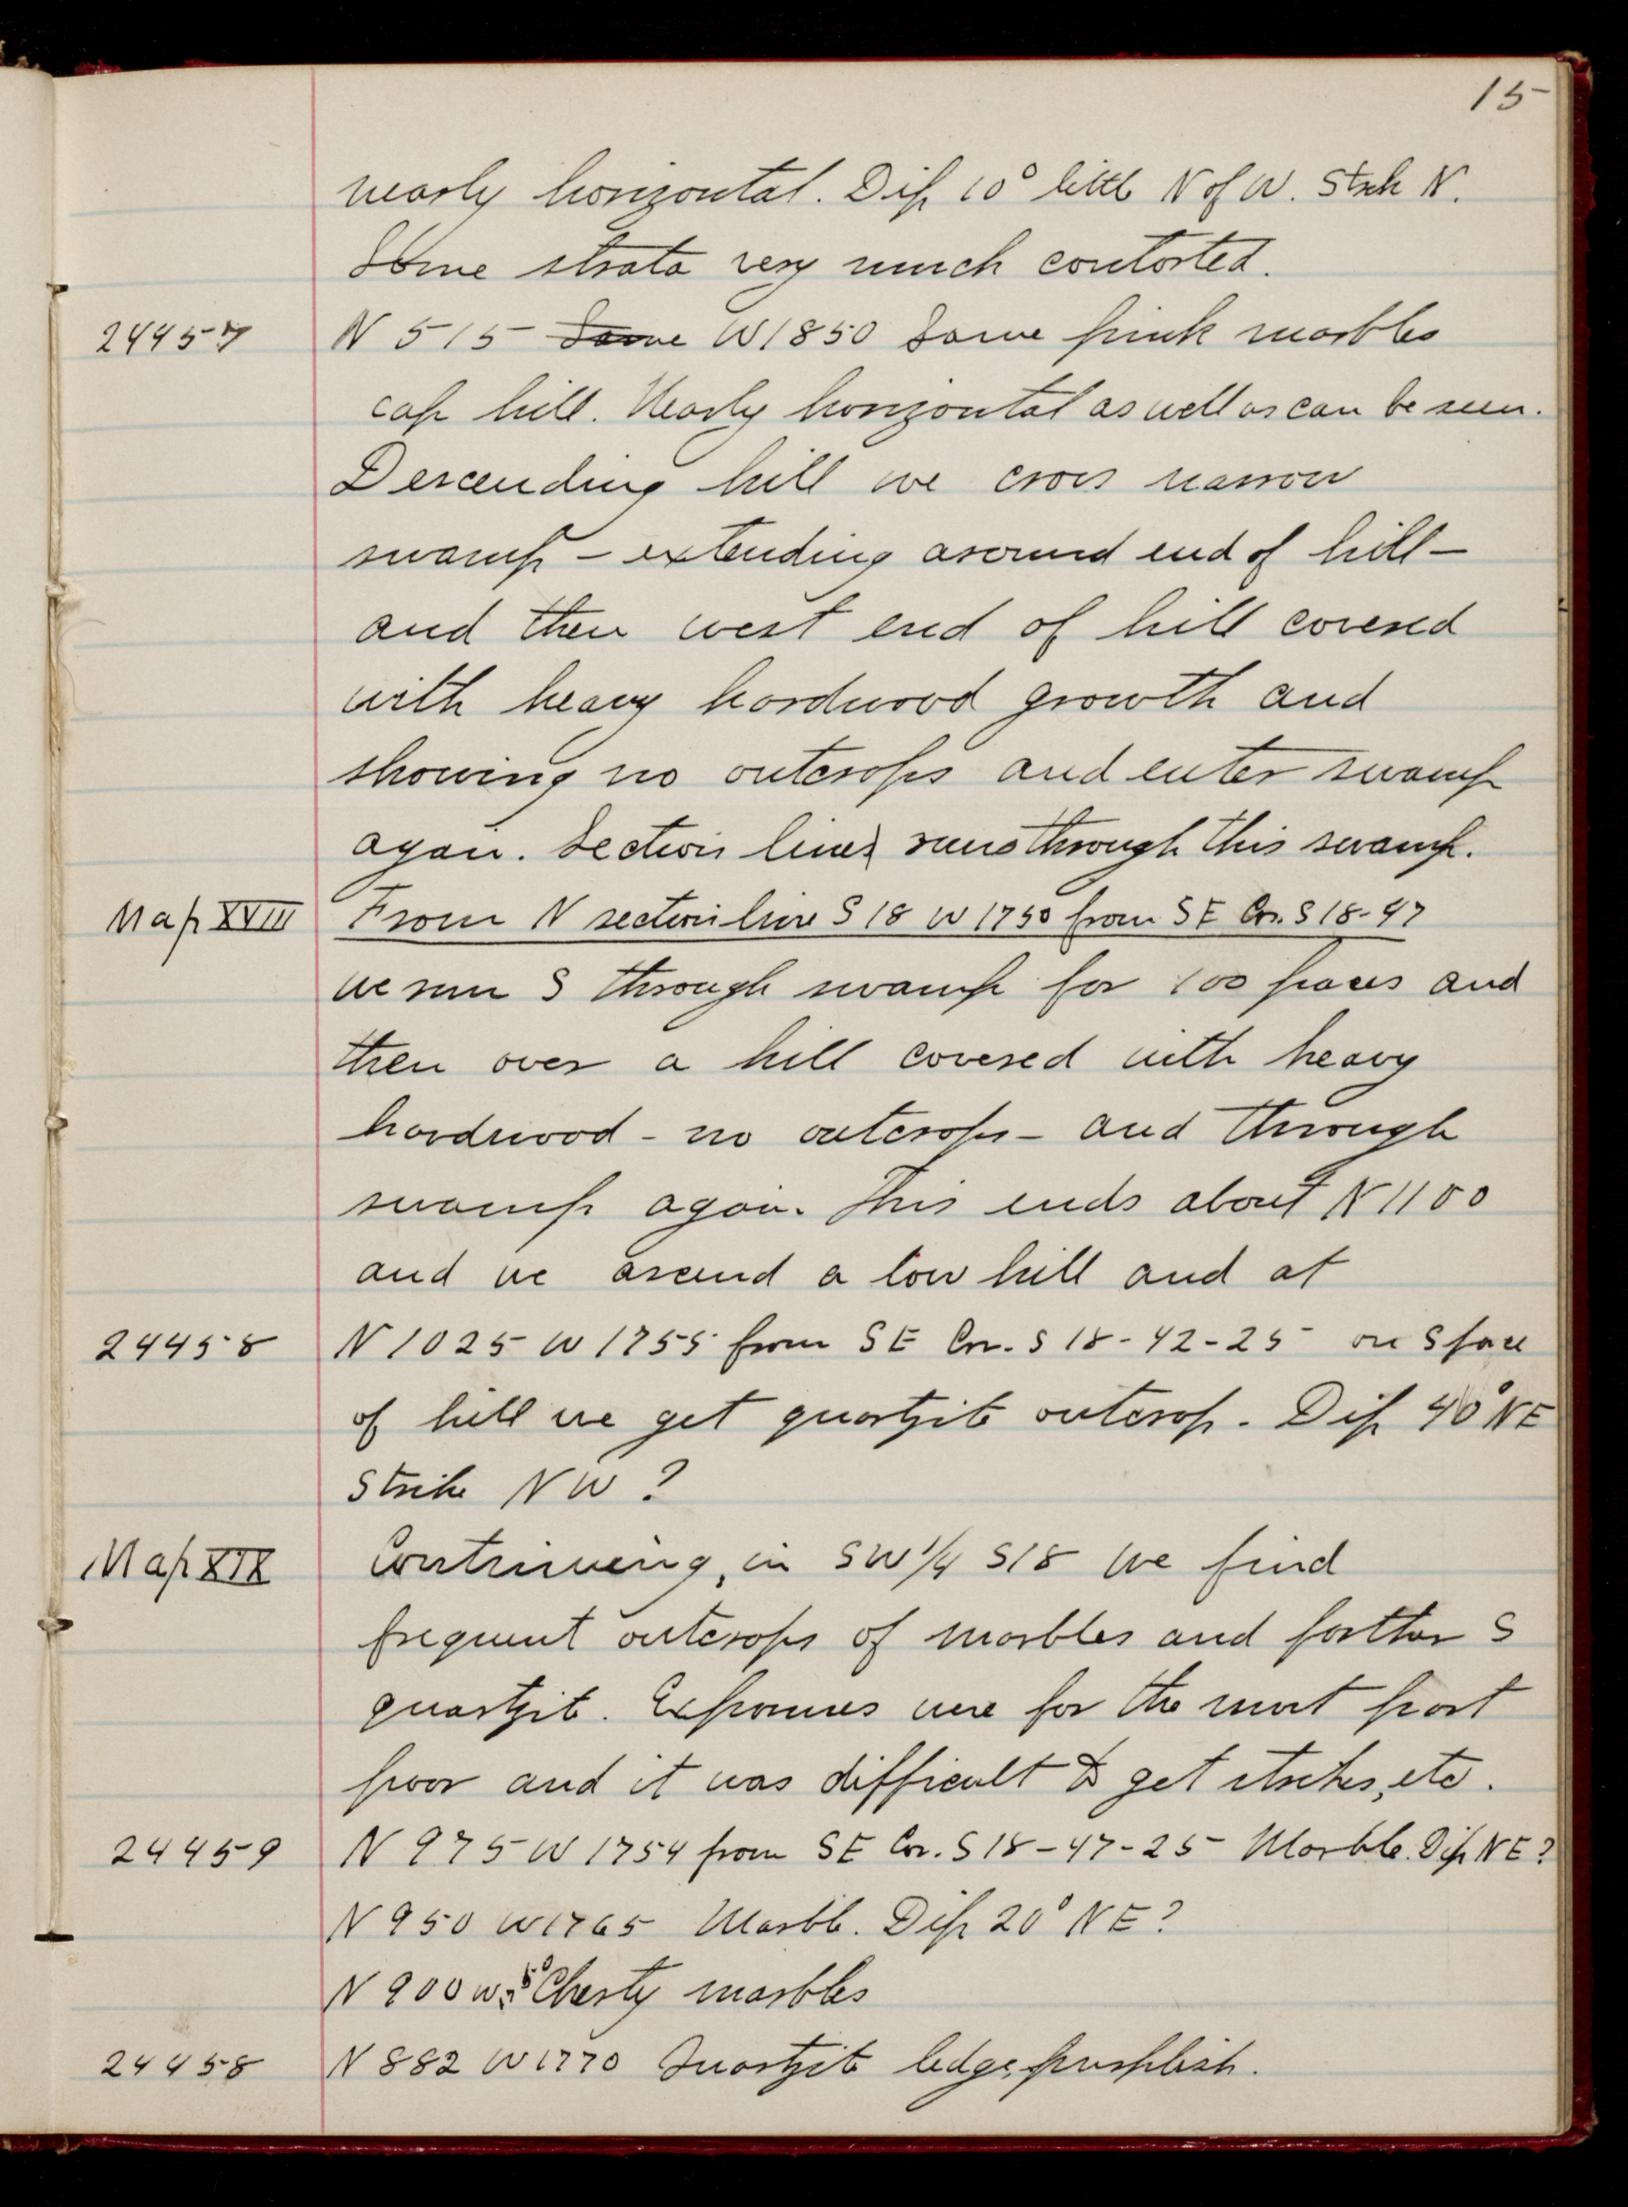 15
nearly horizontal. Dip 10° little N of W. Strk N.
Some strata very much contorted.
24457 N 515 Same W1850 Same pink marbles
cap hill. Nearly horizontal as well as can be seen.
Descending hill we cross narrow
swamp - extending around end of hill -
and then west end of hill covered
with heavy hardwood growth and
showing no outcrops and enter swamp
again. Section line runs through this swamp.
Map XVIII From N section line S 18 W 1750 from SE Cor. S 18-47
we run S through swamp for 100 paces and
then over a hill covered with heavy
hardwood - no outcrops - and through
swamp again. This ends about N 1100
and we ascend a low hill and at
24458 N 1025 W 1755 from SE Cor. S 18-42-25 on S face
of hill we get quartzite outcrop. Dip 40° NE
Strike NW ?
Map XIX Continuing, in SW 1/4 S18 we find
frequent outcrops of marbles and farther S
quartzite. Exposures were for the most part
poor and it was difficult to get strikes, etc.
24459 N 975 W 1754 from SE Cor. S 18-47-25 Marble. Dip NE?
N 950 W1765 Marble. Dip 20° NE?
N 900 W Cherty marbles
24458 N 882 W1770 Quartzite ledge, purplish.